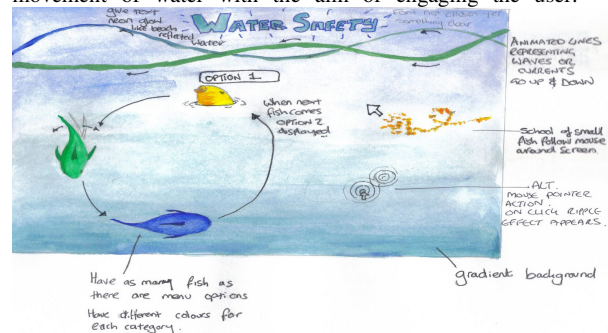 movement of water with the aim of engaging the user.
give text
neon glow
like beach
reflected
water
WATER SAFETY
something clear
ANIMATED LINES
REPRESENTING
WAVES OR
CURRENTS
GO UP & DOWN
OPTION 1
When next
fish comes
OPTION 2
displayed
School of small
fish follow mouse
around screen.
ALT.
MOUSE POINTER
ACTION.
ON CLICK RIPPLE
EFFECT APPEARS.
gradient background
Have as many fish as
there are menu options
Have different colours for
each category.